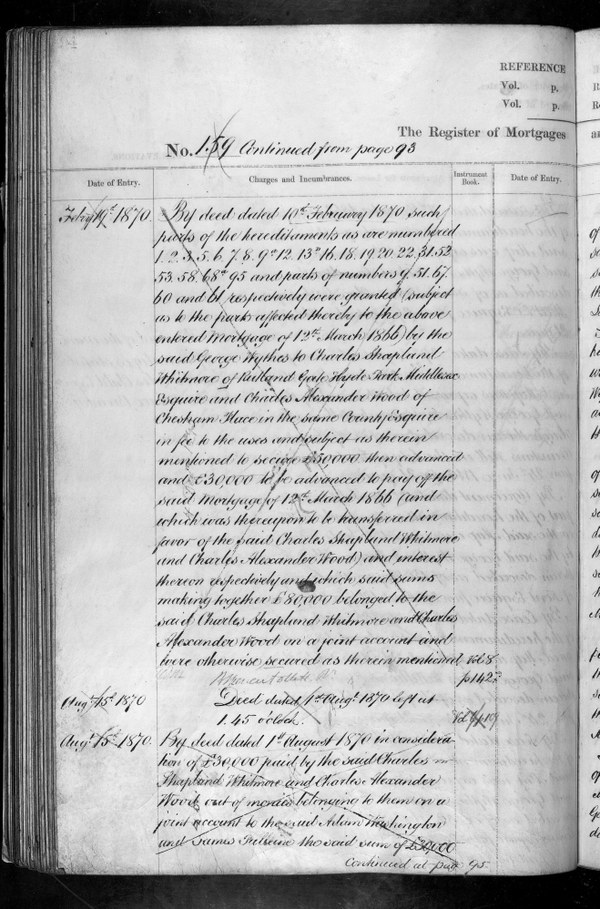 REFERENCE
Vol. p.
Vol. p.
The Register of Mortgages
No. 159 Continued from page 93
Date of Entry.
Charges and Incumbrances.
Instrument Book.
Date of Entry.
Feby 19th 1870.
By deed dated 10th February 1870 such
parts of the hereditaments as are numbered
1. 2. 3. 5. 6. 7. 8. 12. 16. 18. 19. 20. 22. 31. 52
53. 58. 95 and parts of numbers 51. 67.
60 and 61 respectively were granted (subject
as to the parts affected thereby to the above
entered Mortgage of 12th March 1866) by the
said George Wythes to Charles Shapland
Whitmore of Rutland Gate Hyde Park Middlesex
Esquire and Charles Alexander Wood of
Chesham Place in the same County Esquire
in fee to the uses and subject as therein
mentioned to secure £50,000 then advanced
and £30,000 to be advanced to pay off the
said Mortgage of 12th March 1866 (and
which was thereupon to be transferred in
favor of the said Charles Shapland Whitmore
and Charles Alexander Wood) and interest
thereon respectively and which said sums
making together £80,000 belonged to the
said Charles Shapland Whitmore and Charles
Alexander Wood on a joint account and
were otherwise secured as therein mentioned
Vol 8.
p 142
Augt 15th 1870
Deed dated 1st Augt 1870 left at
1.45 o'clock.
Augt 15th 1870.
By deed dated 1st August 1870 in considera-
tion of £30,000 paid by the said Charles
Shapland Whitmore and Charles Alexander
Wood out of monies belonging to them on a
joint account to the said Adam Washington
and James the said sum of £30,000
Continued at page 95